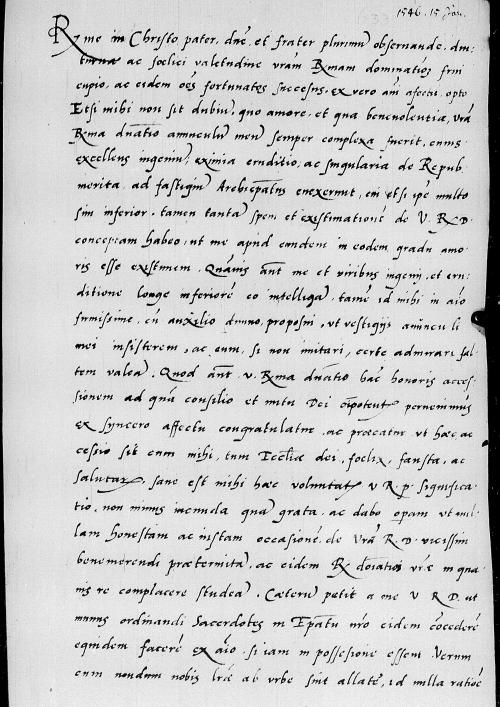 1546. 15 Jan.
Rme in Christo pater, dne, et frater plurimū observande, diu-
turna ac foelici valetudine vrām Rmam dominatioēs frui
cupio, ac eidem oēs fortunates successus, ex vero aīi afectu opto
Etsi mihi non sit dubiū, quo amore, et qua benevolentia, vrā
Rma dnatio amunculū meū semper complexa fuerit, cuius
excellens ingeniū, eximia eruditio, ac singularia de Repub.
merita, ad fastigiū Archiepātus evexerunt, cui etsi ipē multo
sim inferior, tamen tantā spem et existimationē de V. R. D.
conceptam habeo, ut me apud eandem in eodem gradu amo-
ris esse existimem. Quāvis ant me et viribus ingenij, et eru
ditione longe inferiorē eo intelligā, tamē id mihi in aīo
firmissime, cū auxilio divino, proposui, ut vestigijs amūcu li
mei insisterem, ac eum, si non imitari, certe admirari sal-
tem valeā. Quod ant. V. Rma dnatio hāc honoris acces-
sionem ad quā consilio et nutu Dei oīpotent pervenimus
ex syncero affectu congratulatur, ac praecatur ut haec ac
cessio sit cum mihi, tum Eccliae dei, foelix, fausta, ac
salutar, sane est mihi haec voluntat V R. p. significa-
tio, non minus iucunda quā grata, ac dabo opam ut nul-
lam honestam ac iustam occasionē de Vrā R. D. vicissim
benemerendi praetermitā, ac eidem R doiatioi vrae in qua
vis re complacere studeā. Caeterū petit a me V R D. ut
munus ordinandi Sacerdotes in Epātu nro eidem cōcederē
equidem facerē ex aīo, si iam in possesione essem. Verum
cum nondum nobis lrae ab urbe sint allatē, id nulla ratioē